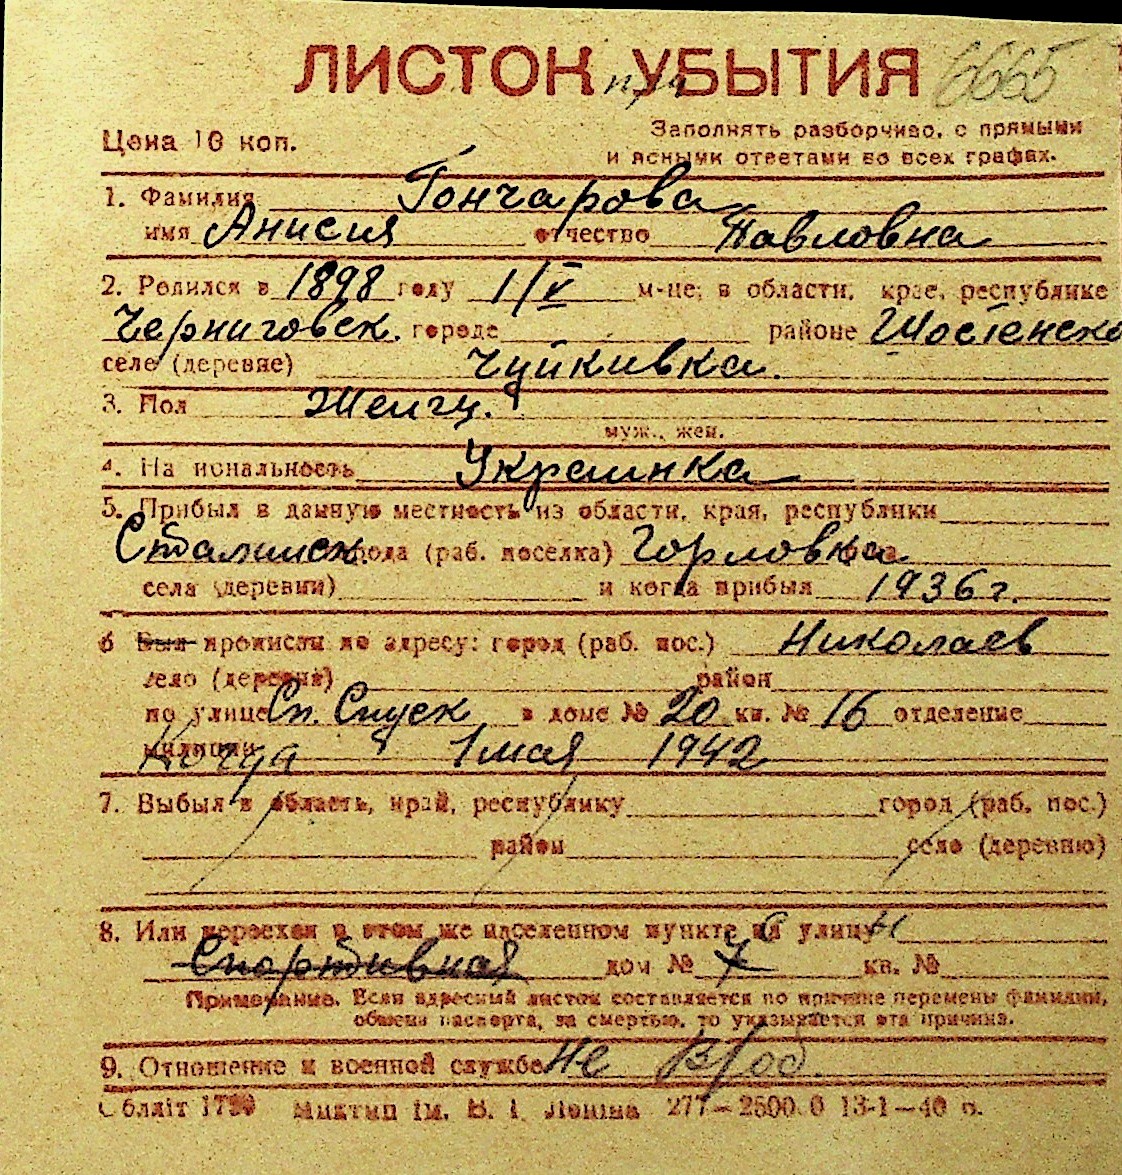 ЛИСТОК УБЫТИЯ 6665
Цена 10 коп.
Заполнять разборчиво, с прямыми
и ясными ответами во всех графах.
1. Фамилия Гончарова
имя Анисия отчество Павловна
2. Родился в 1898 году 1/V м-це; в области, крае, республике
Черниговск. городе районе Шостенско
селе (деревне) Чуйкивка.
3. Пол Женщ.
муж., жен.
4. Национальность Украинка
5. Прибыл в данную местность из области, края, республики
Сталинск. города (раб. поселка) Горловка
села (деревни) и когда прибыл 1936 г.
6 Был прописан по адресу: город (раб. пос.) Николаев
село (деревня) район
по улице Сп. Спуск в доме № 20 кв. № 16 отделение
милиции Когда 1 мая 1942
7. Выбыл в область, край, республику город (раб. пос.)
район село (деревню)
8. Или переехал в этом же населенном пункте на улицу
Спортивная дом № 7 кв. №
Примечание. Если адресный листок составляется по причине перемены фамилии,
обмена паспорта, за смертью, то указывается эта причина.
9. Отношение к военной службе Не в/об.
Облліт 1790 Миктип ім. В. І. Леніна 277—2500.0 13-1—40 р.